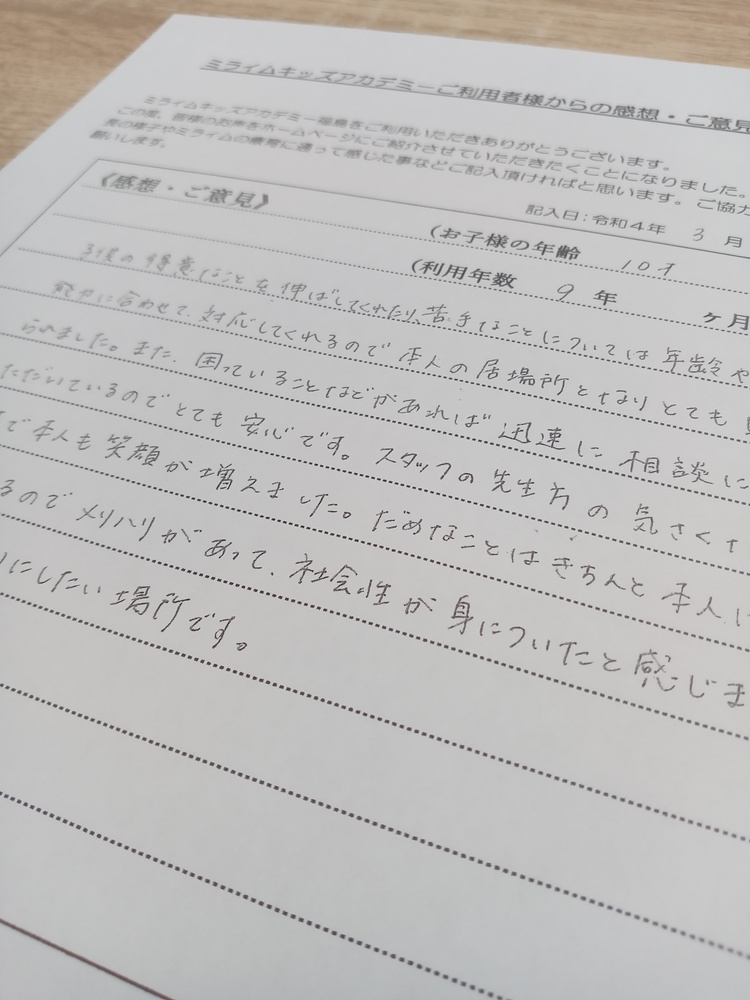 ミライムキッズアカデミーご利用者様からの感想・ご意見
ミライムキッズアカデミー福島をご利用いただきありがとうございます。
この度、皆様のお声をホームページにご紹介させていただきたくことになりました。
の様子やミライムの療育に通って感じた事などご記入頂ければと思います。ご協力
願いします。
記入日：令和４年 3 月
《感想・ご意見》
(お子様の年齢 10才
(利用年数 9 年 ヶ月
子供の得意なことを伸ばしてくれたり、苦手なことについては年齢や
能力に合わせて、対応してくれるので本人の居場所となりとても
られました。また、困っていることなどがあれば迅速に相談に
ただいているのでとても安心です。スタッフの先生方の気さくさ
で本人も笑顔が増えました。だめなことはきちんと本人に
るのでメリハリがあって、社会性が身についたと感じま
にしたい場所です。